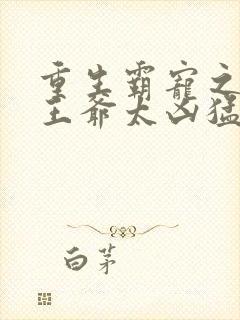 重生霸宠之
王爷太凶猛
白茅